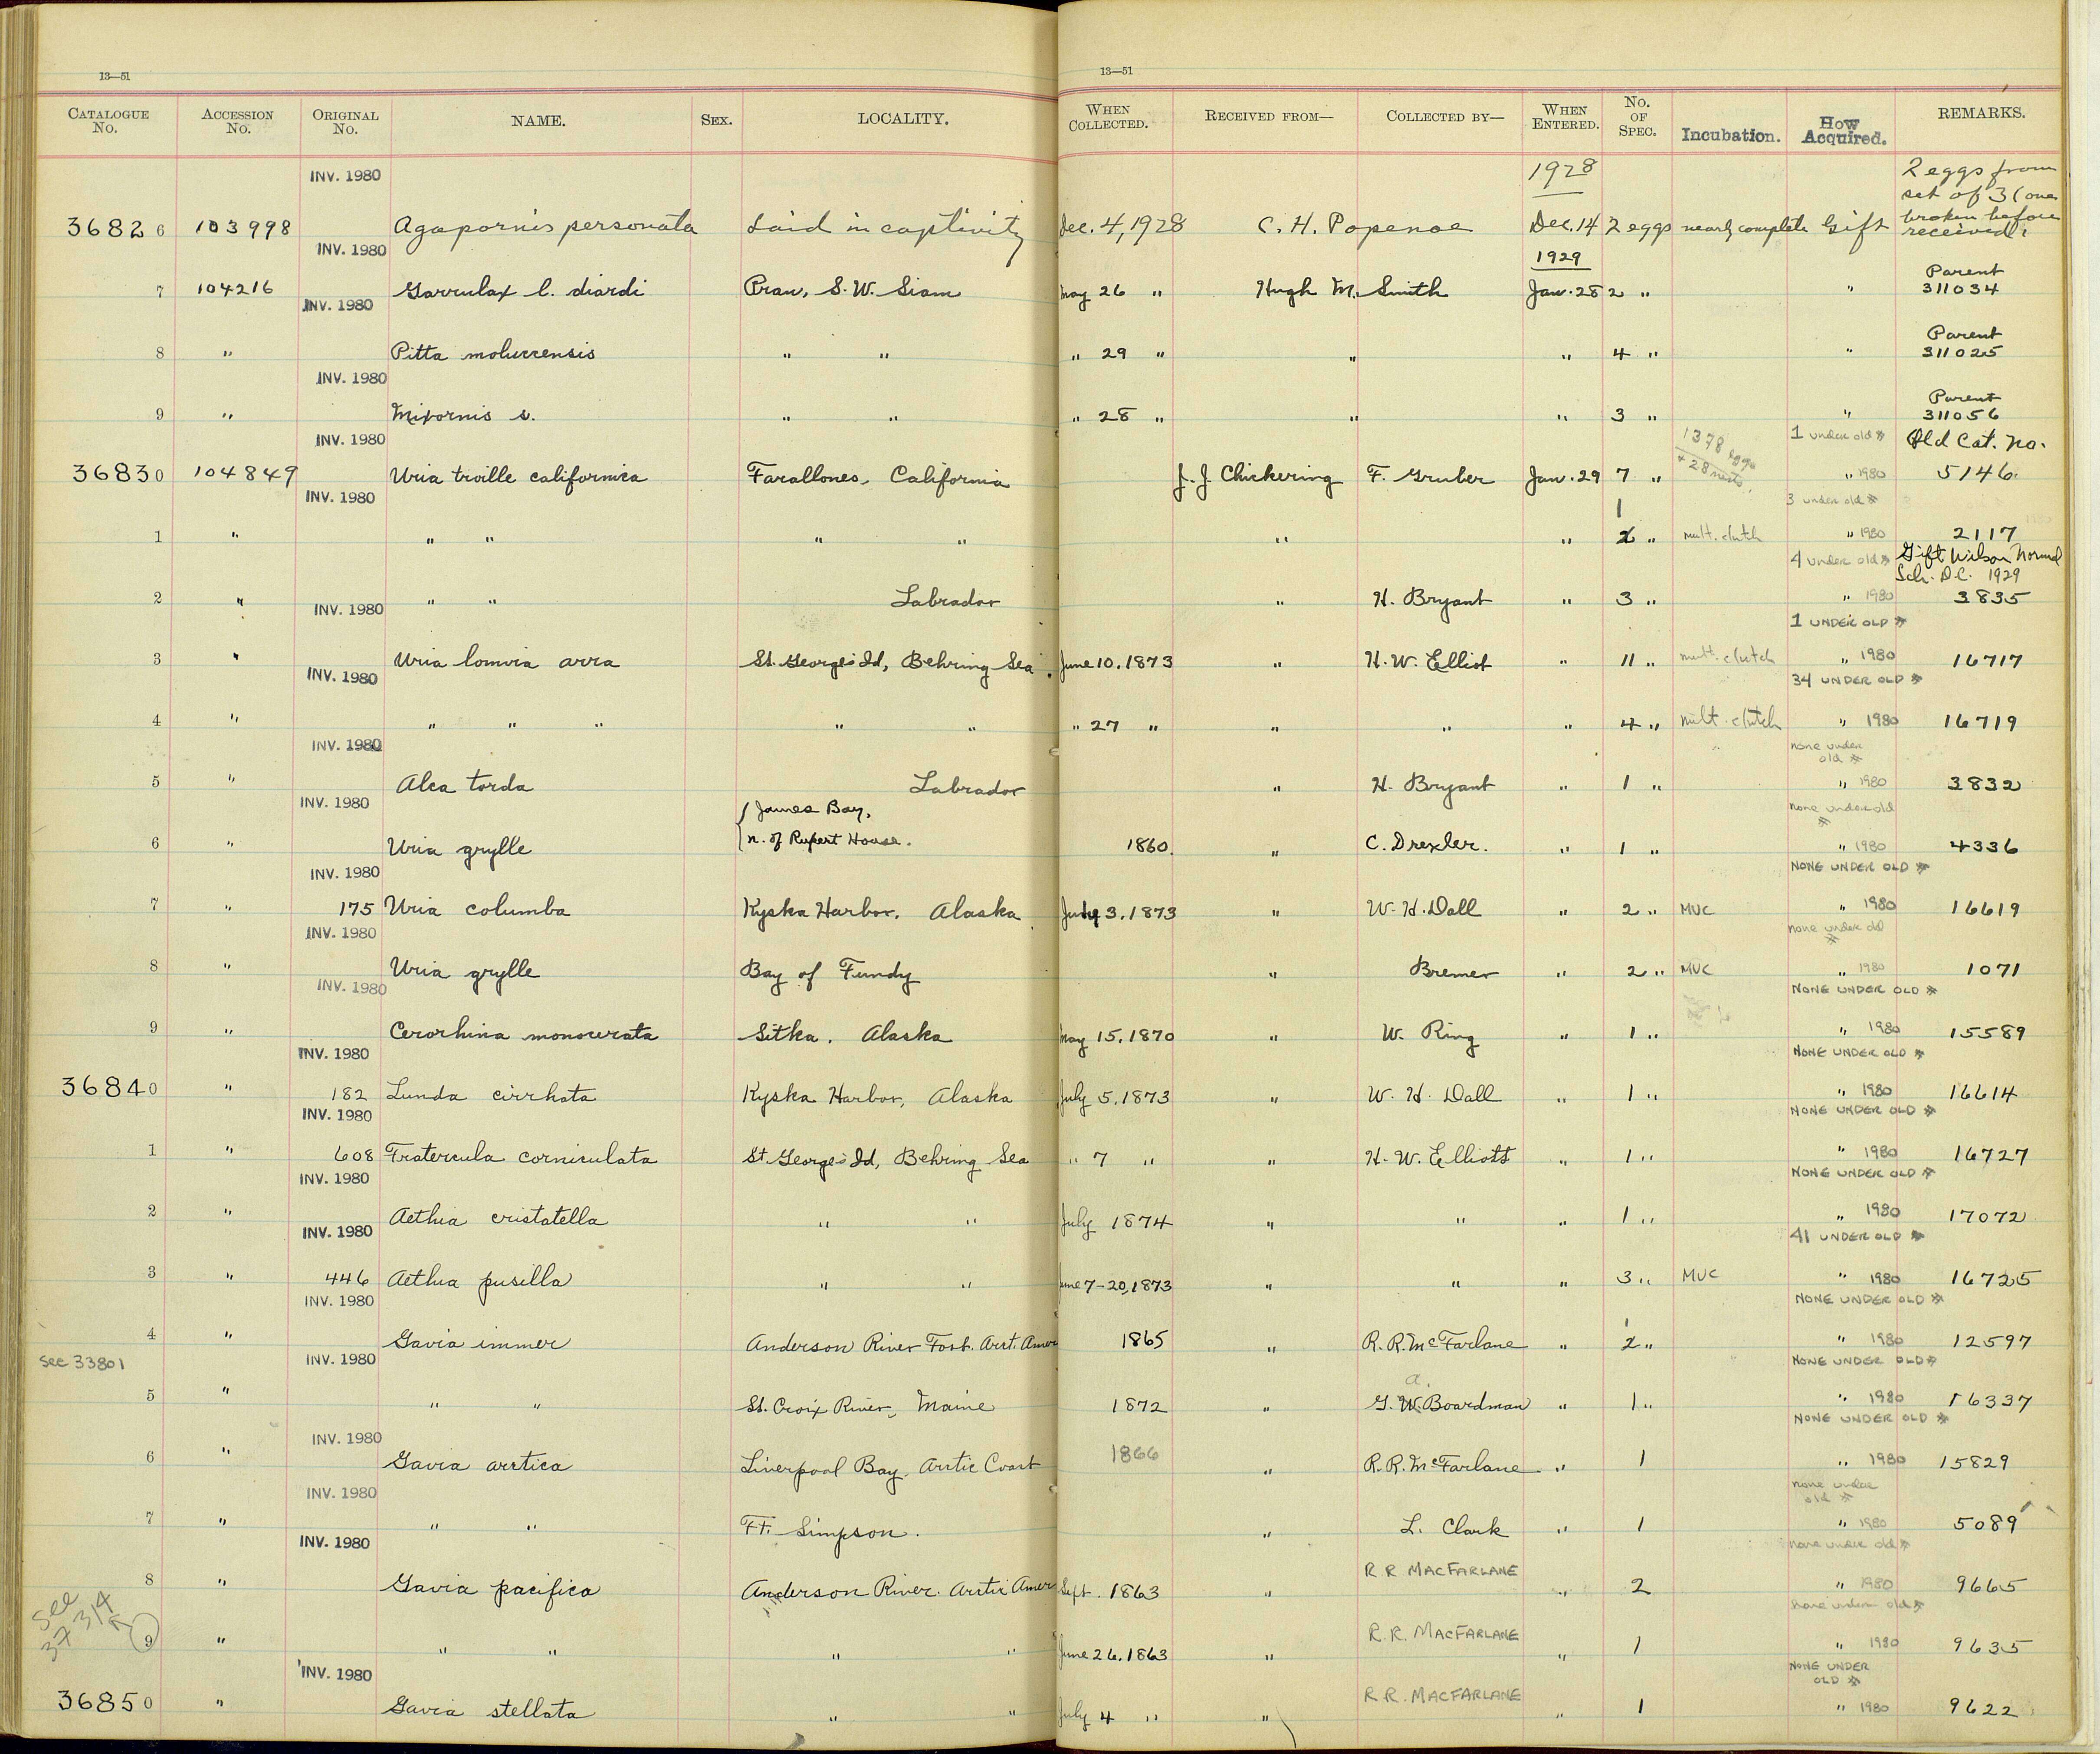 13—51
13—51
CATALOGUE No. ACCESSION No. ORIGINAL No. NAME. SEX. LOCALITY. WHEN COLLECTED. RECEIVED FROM— COLLECTED BY— WHEN ENTERED. No. OF SPEC. Incubation. How Acquired. REMARKS.
INV. 1980 1928 2 eggs from
set of 3 (one
36826 103998 Agapornis personata Laid in captivity Dec. 4, 1928 C. H. Popenoe Dec. 14 2 eggs nearly complete Gift broken before
received)
INV. 1980 1929 Parent
7 104216 Garrulax l. diardi Pran, S.W. Siam May 26 " Hugh M. Smith Jan. 28 2 " " 311034
INV. 1980 Parent
8 " Pitta moluccensis " " " 29 " " " 4 " " 311025
INV. 1980 Parent
9 " Mixornis s. " " " 28 " " " 3 " " 311056
INV. 1980 1378 eggs + 28 nests. 1 under old # Old Cat. no.
36830 104849 Uria troille californica Farallones, California J. J Chickering F. Gruber Jan. 29 7 " " 1980 5146.
INV. 1980 1 3 under old #
1 " " " " " " " 2 " mult. clutch " 1980 2117
4 under old # Gift Wilson Normal
Sch. D.C. 1929
2 " " " Labrador " H. Bryant " 3 " " 1980 3835
INV. 1980 1 UNDER OLD #
3 " Uria lomvia arra St. George's Id, Behring Sea June 10, 1873 " H. W. Elliot " 11 " mult. clutch " 1980 16717
INV. 1980 34 UNDER OLD #
4 " " " " " " " 27 " " " " 4 " mult. clutch " 1980 16719
INV. 1980 none under
old #
5 " Alca torda Labrador " H. Bryant " 1 " " 1980 3832
INV. 1980 James Bay, none under old
#
6 " Uria grylle n. of Rupert House. 1860. " C. Drexler. " 1 " " 1980 4336
INV. 1980 NONE UNDER OLD #
7 " 175 Uria columba Kyska Harbor. Alaska July 3, 1873 " W. H. Dall " 2 " MUC " 1980 16619
INV. 1980 none under old
#
8 " Uria grylle Bay of Fundy " Bremer " 2 " MUC " 1980 1071
INV. 1980 NONE UNDER OLD #
9 " Cerorhina monocerata Sitka. Alaska May 15, 1870 " W. Ring " 1 " " 1980 15589
INV. 1980 NONE UNDER OLD #
36840 " 182 Lunda cirrhata Kyska Harbor, Alaska July 5, 1873 " W. H. Dall " 1 " " 1980 16614
INV. 1980 NONE UNDER OLD #
1 " 608 Fratercula corniculata St. George's Id, Behring Sea " 7 " " H. W. Elliott " 1 " " 1980 16727
INV. 1980 NONE UNDER OLD #
2 " Aethia cristatella " " July 1874 " " " 1 " " 1980 17072
INV. 1980 41 UNDER OLD #
3 " 446 Aethia pusilla " " June 7-20, 1873 " " " 3 " MUC " 1980 16725
INV. 1980 NONE UNDER OLD #
4 " Gavia immer Anderson River Fort. Arct. Amer 1865 " R. R. McFarlane " 2 " " 1980 12597
see 33801 INV. 1980 NONE UNDER OLD #
a.
5 " " " St. Croix River, Maine 1872 " G. W. Boardman " 1 " " 1980 16337
INV. 1980 NONE UNDER OLD #
6 " Gavia arctica Liverpool Bay. Arctic Coast 1866 " R. R. McFarlane " 1 " 1980 15829
INV. 1980 none under
old #
7 " " " Ft. Simpson. " L. Clark " 1 " 1980 5089
INV. 1980 none under old #
8 " Gavia pacifica Anderson River. Arctic Amer Sept. 1863 " R R MACFARLANE " 2 " 1980 9665
none under old #
See 37314
9 " " " " " June 26, 1863 " R. R. MACFARLANE " 1 " 1980 9635
INV. 1980 NONE UNDER
OLD #
36850 " Gavia stellata " " July 4 " " R R. MACFARLANE " 1 " 1980 9622